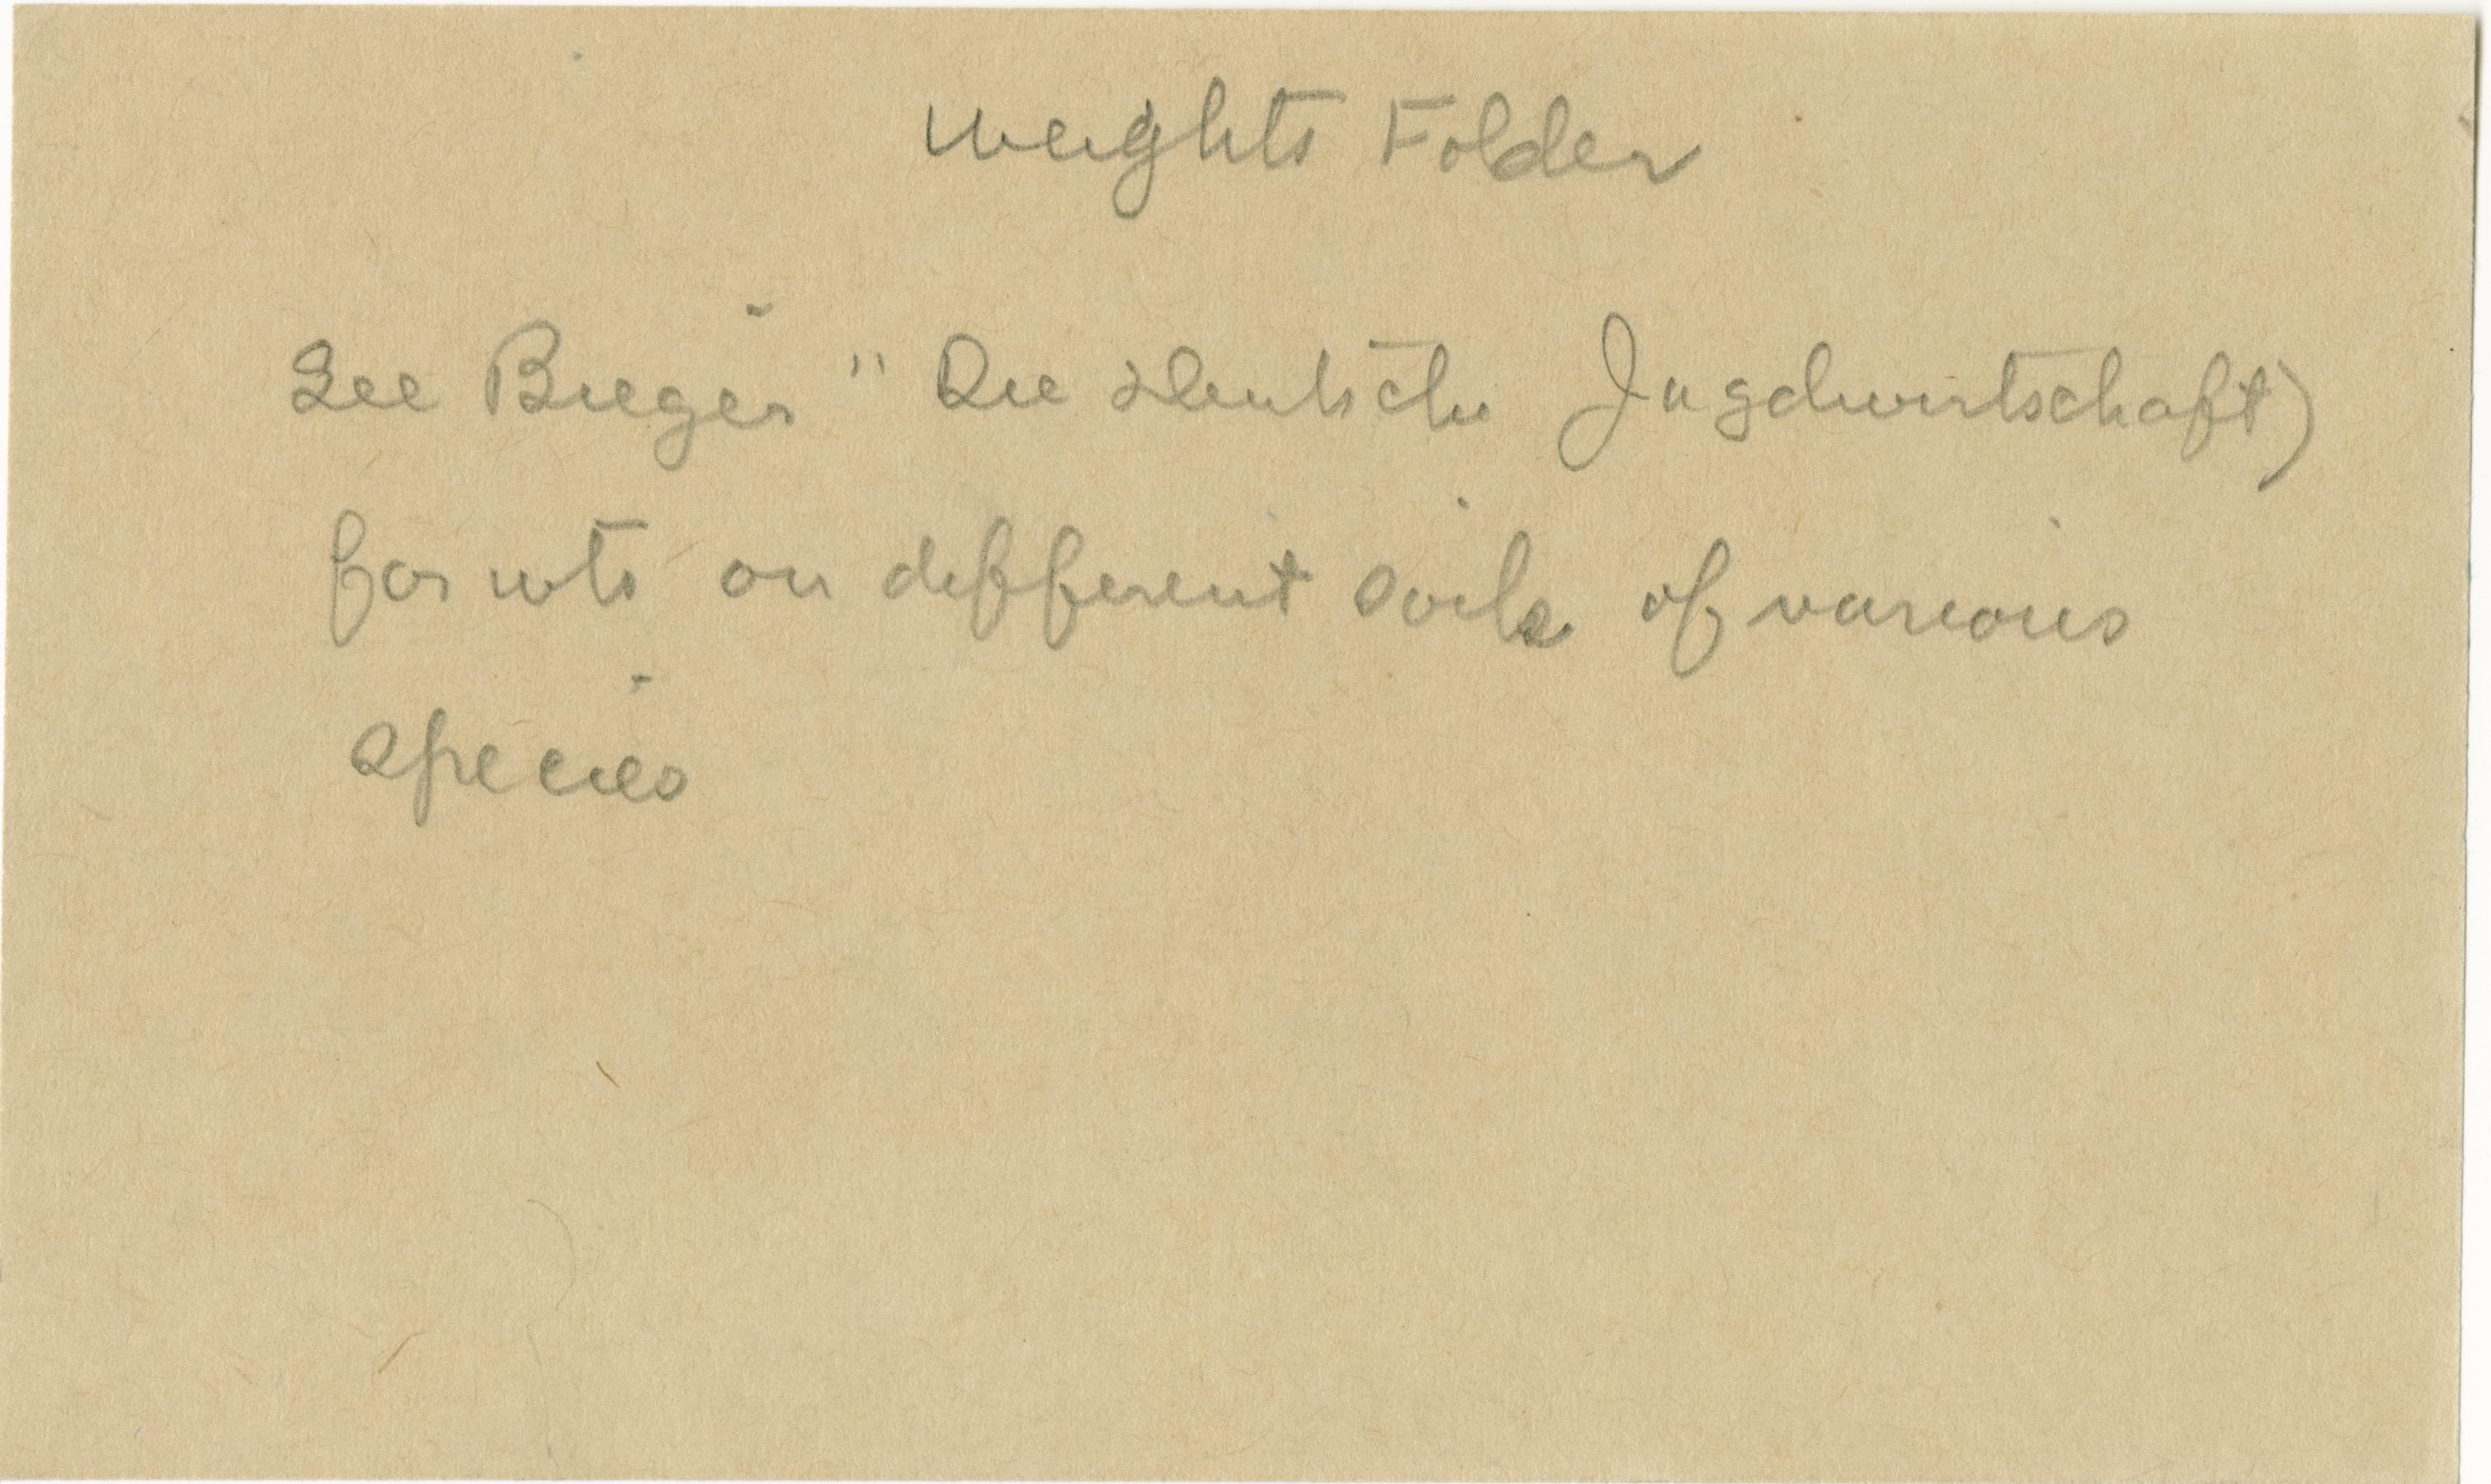 Weights Folder
See Bieger " Die Deutsche Jagdwirtschaft)
for wts on different soils of various
species